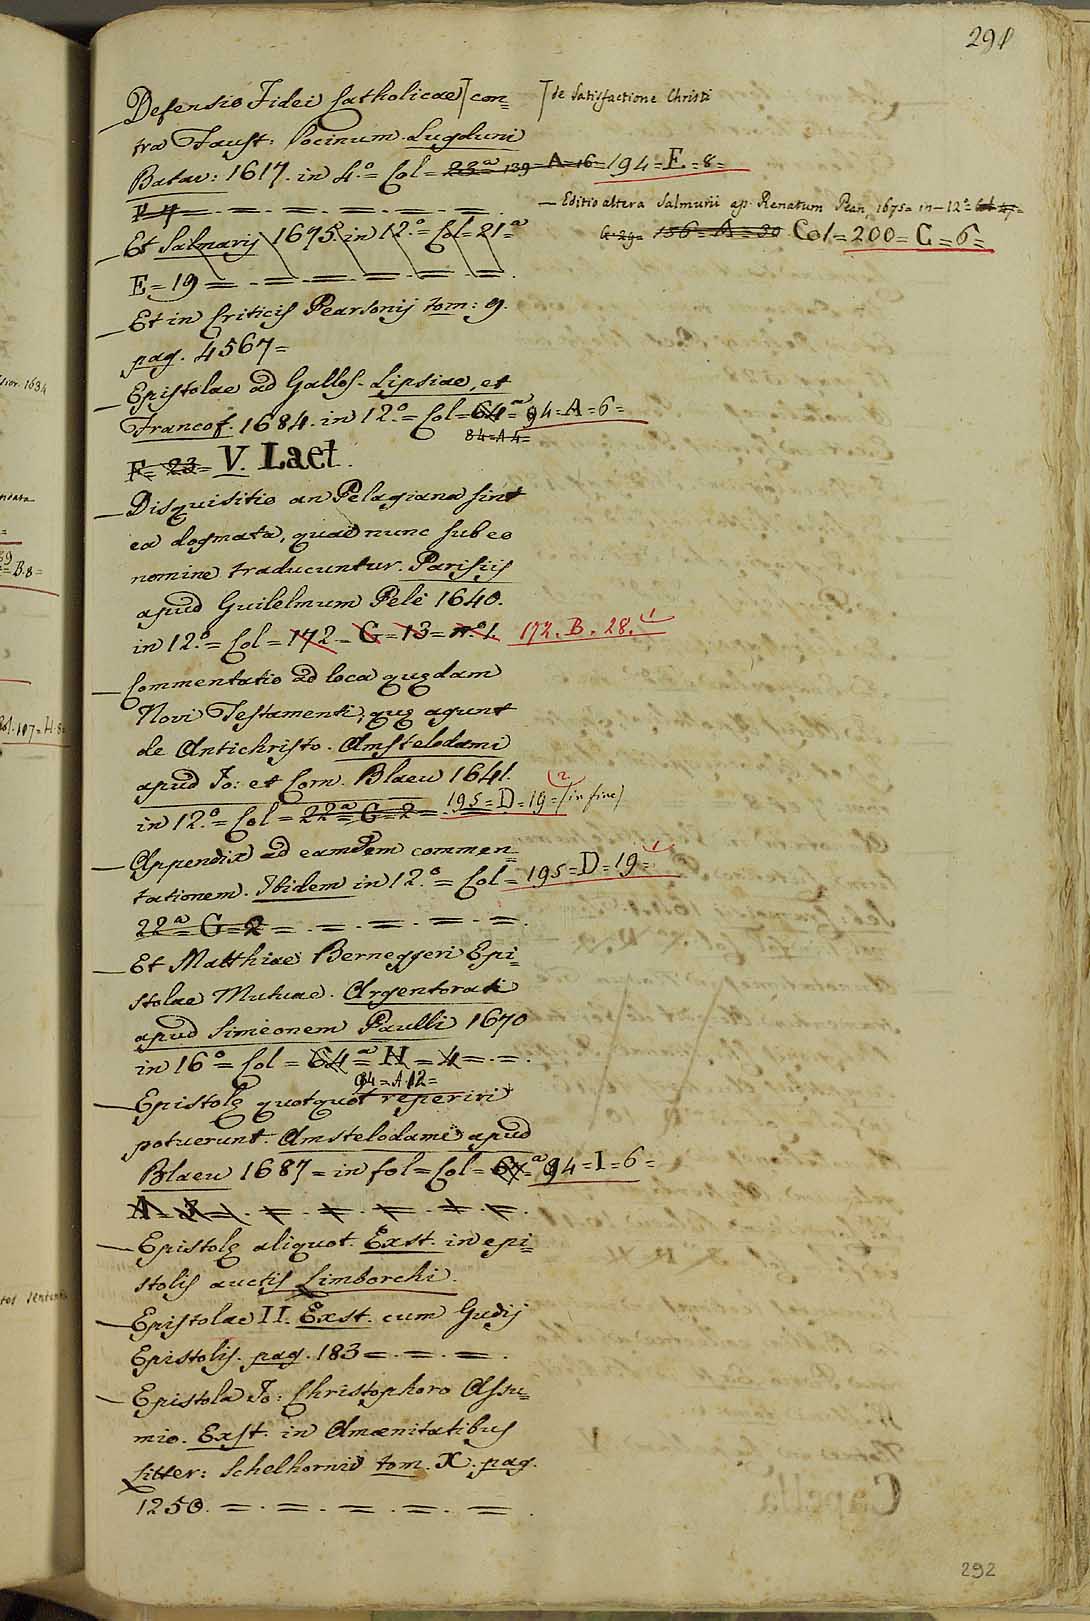 291
Defensio Fidei Catholicae con=
de Satisfactione Christi
tra Faust: Socinum. Lugduni
Batav: 1617. in 4.º = Col = 22ª 139 = A = 16 = 194 = E = 8 =
— Editio altera Salmurii ap. Renatum Pean, 1675 = in – 12º =
156 = A = 30 Col = 200 = C = 6 =
— Et Salmurij 1675. in 12.º = Col = 21ª =
E = 19 =
— Et in Criticis Pearsonij tom: 9.
pag. 4567 =
— Epistolae ad Gallos. Lipsiae, et
Francof. 1684. in 12.º = Col = 64ª = 94 = A = 6 =
84 = A 4 =
F = 23 = V. Laet.
— Disquisitio an Pelagiana sint
ea dogmata, quae nunc sub eo
nomine traducuntur. Parisiis
apud Guilelmum Pelè 1640.
in 12.º = Col = 172 = C = 13 = nº 1. 172. B. 28. 1
— Commentatio ad loca quędam
Novi Testamenti, quę agunt
de Antichristo. Amstelodami
apud Jo: et Corn. Blaeu 1641.
in 12.º = Col = 22ª = G = 2 = 195 = D = 19 = (in fine) 2
— Appendix ad eamdem commen=
tationem. Ibidem in 12.º = Col = 195 = D = 19 = 1
22ª = G = 2 =
— Et Matthiae Berneggeri Epi=
stolae Mutuae. Argentorati
apud Simeonem Paulli 1670
in 16º = Col = 64ª = H = 4 =
94 = A 12 =
— Epistolę quotquot reperiri
potuerunt. Amstelodami apud
Blaeu 1687 = in fol = Col = 67ª = 94 = I = 6 =
— Epistolę aliquot. Exst. in epi=
stolis auctis Limborchi.
— Epistolae II. Exst. cum Gudij
Epistolis. pag. 183 =
— Epistola Jo: Christophoro Assu=
mio. Exst. in Amaenitatibus
Litter: Schelhornii tom. X. pag.
1250. =
292